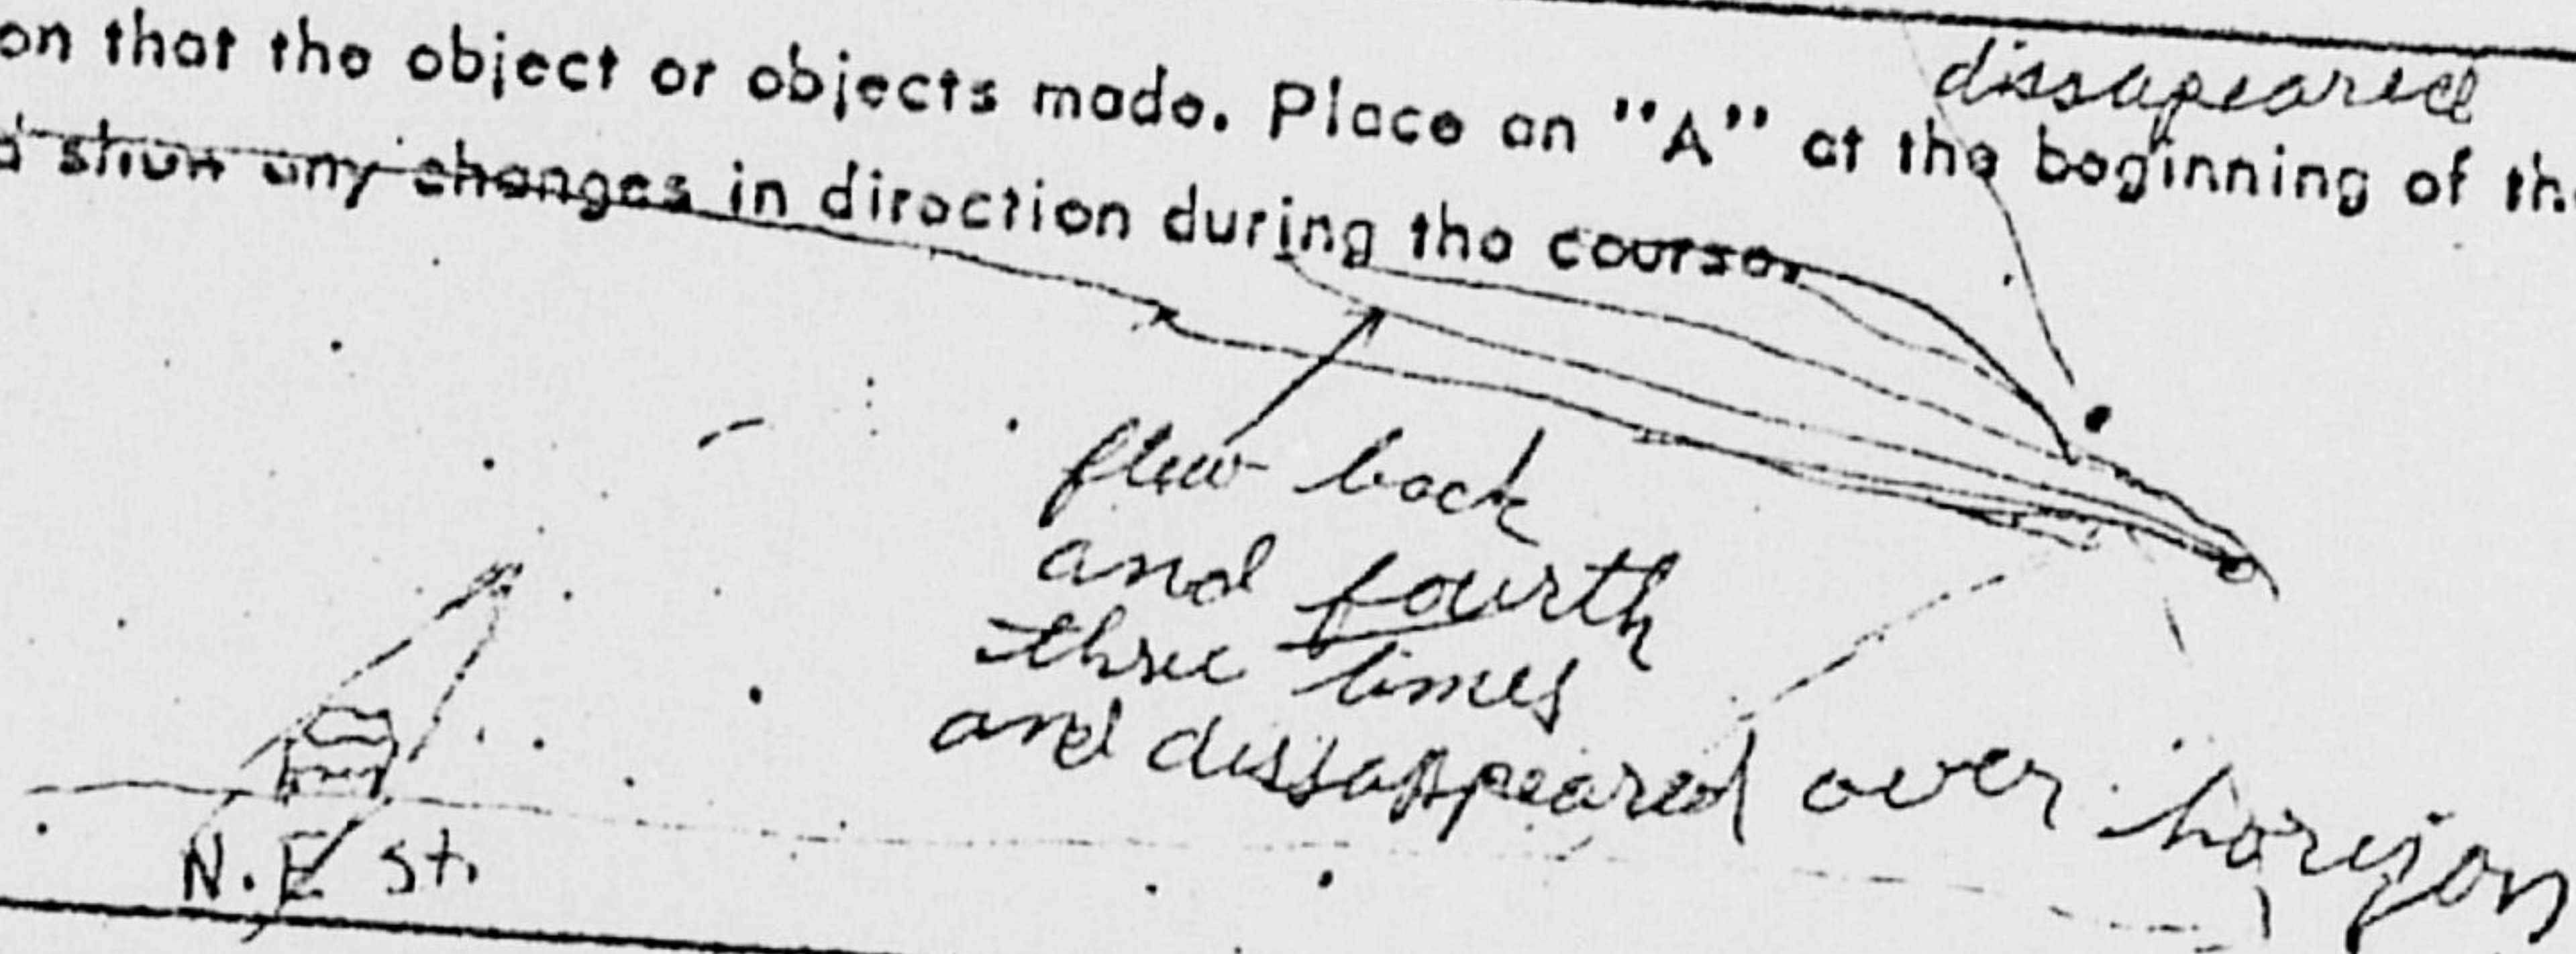 dissapeared
on that the object or objects made. Place an "A" at the beginning of th
d show any changes in direction during the course.
flew back
and fourth
three times
and dissappeared over horizon
N.E St.